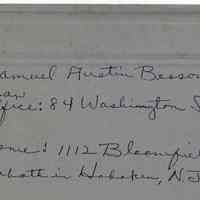 amuel Austin Besso
an
ffice: 84 Washington S
ome: 1112 Bloomfie
both in Hoboken, N.J